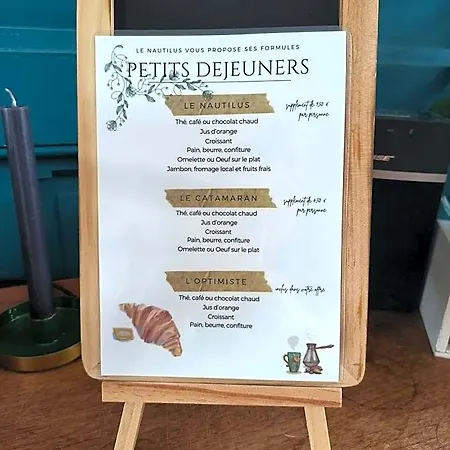 LE NAUTILUS VOUS PROPOSE SES FORMULES
PETITS DEJEUNERS
LE NAUTILUS
supplement de 7,50 €
par personne
Thé, café ou chocolat chaud
Jus d'orange
Croissant
Pain, beurre, confiture
Omelette ou Oeuf sur le plat
Jambon, fromage local et fruits frais
LE CATAMARAN
supplement de 4,50 €
par personne
Thé, café ou chocolat chaud
Jus d'orange
Croissant
Pain, beurre, confiture
Omelette ou Oeuf sur le plat
L'OPTIMISTE
inclus dans votre offre
Thé, café ou chocolat chaud
Jus d'orange
Croissant
Pain, beurre, confiture